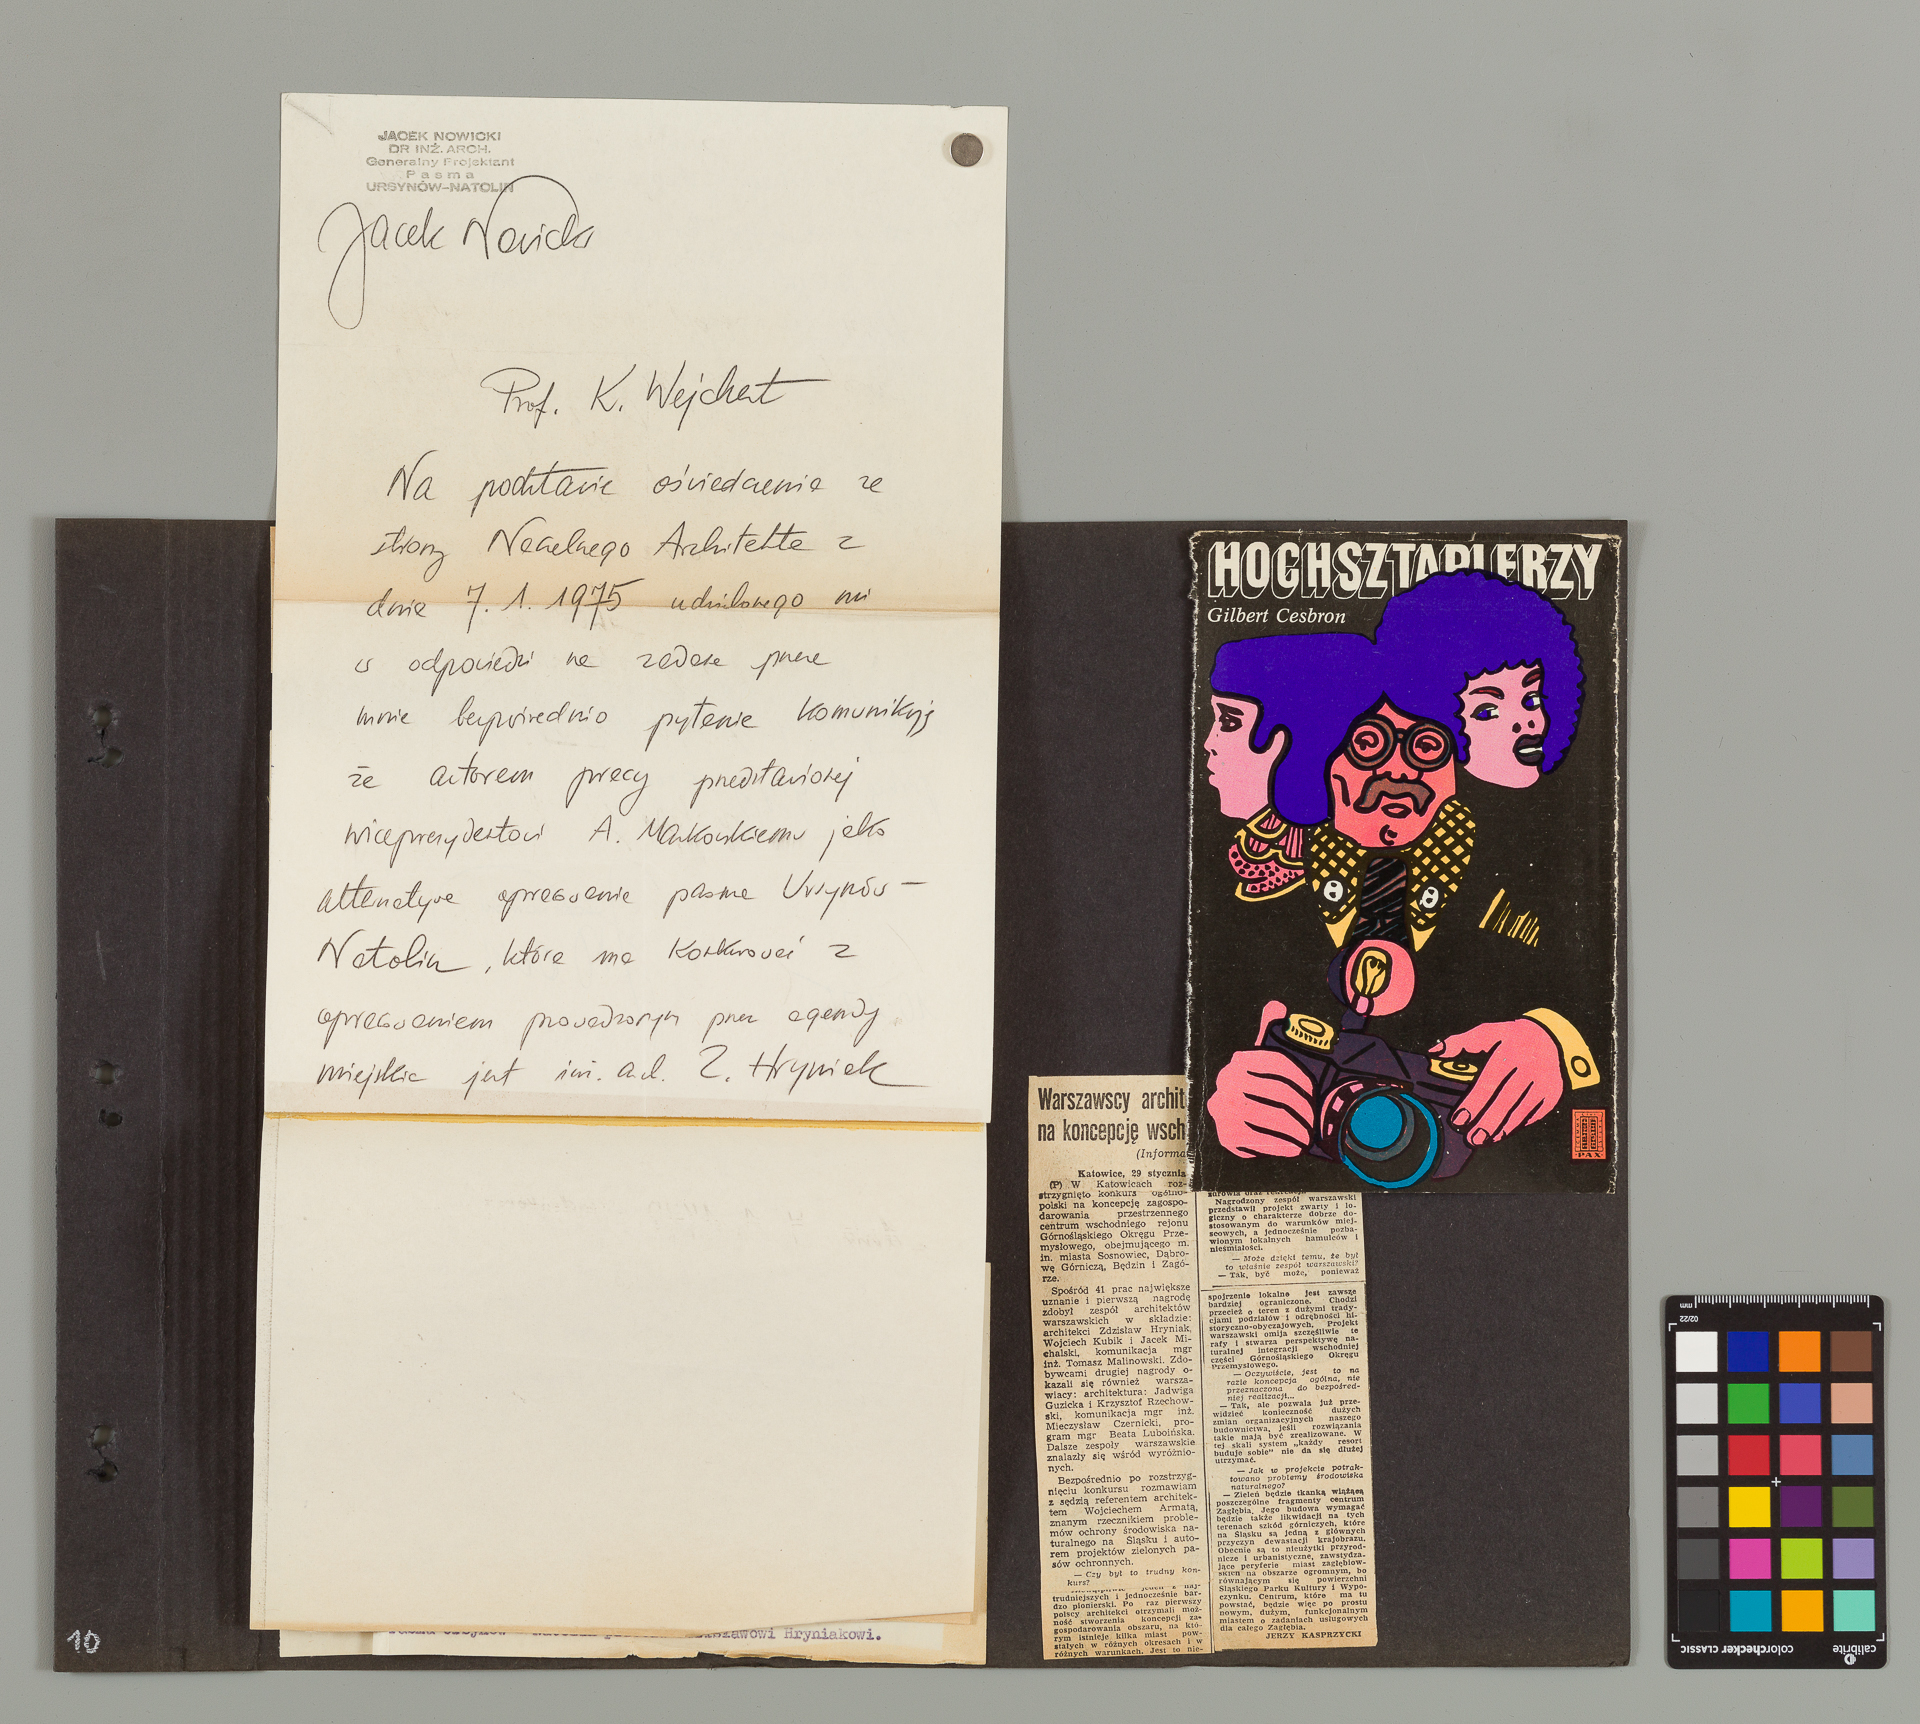 JACEK NOWICKI
DR INŻ. ARCH.
Generalny Projektant
Pasma
URSYNÓW-NATOLIN
Jacek Nowicki
Prof. K. Wejchert
Na podstawie oświadczenia ze
strony Naczelnego Architekta z
dnia 7.1.1975 udzielonego mi
w odpowiedzi na zadane przez
mnie bezpośrednio pytanie komunikuję
że autorem pracy przedstawionej
wiceprezydentowi A. Markowskiemu jako
alternatywa opracowania pasma Ursynów-
Natolin, która ma konkurować z
opracowaniem prowadzonym przez agendy
miejskie jest inż. arch. Z. Hryniak
Hryniakowi.
10
HOCHSZTAPLERZY
Gilbert Cesbron
PAX
Warszawscy archit
na koncepcję wsch
(Informa
Katowice, 29 stycznia
(P) W Katowicach roz-
strzygnięto konkurs ogólno-
polski na koncepcję zagospo-
darowania przestrzennego
centrum wschodniego rejonu
Górnośląskiego Okręgu Prze-
mysłowego, obejmującego m.
in. miasta Sosnowiec, Dąbro-
wę Górniczą, Będzin i Zagó-
rze.
Spośród 41 prac największe
uznanie i pierwszą nagrodę
zdobył zespół architektów
warszawskich w składzie:
architekci Zdzisław Hryniak,
Wojciech Kubik i Jacek Mi-
chalski, komunikacja mgr
inż. Tomasz Malinowski. Zdo-
bywcami drugiej nagrody o-
kazali się również warsza-
wiacy: architektura: Jadwiga
Guzicka i Krzysztof Rzechow-
ski, komunikacja mgr inż.
Mieczysław Czernicki, pro-
gram mgr Beata Luboińska.
Dalsze zespoły warszawskie
znalazły się wśród wyróżnio-
nych.
Bezpośrednio po rozstrzyg-
nięciu konkursu rozmawiam
z sędzią referentem architek-
tem Wojciechem Armatą,
znanym rzecznikiem proble-
mów ochrony środowiska na-
turalnego na Śląsku i auto-
rem projektów zielonych pa-
sów ochronnych.
— Czy był to trudny kon-
kurs?
trudniejszych i jednocześnie bar-
dzo pionierski. Po raz pierwszy
polscy architekci otrzymali moż-
ność stworzenia koncepcji za-
gospodarowania obszaru, na któ-
rym istnieje kilka miast pow-
stałych w różnych okresach i w
różnych warunkach. Jest to nie-
Nagrodzony zespół warszawski
przedstawił projekt zwarty i lo-
giczny o charakterze dobrze do-
stosowanym do warunków miej-
scowych, a jednocześnie pozba-
wionym lokalnych hamulców i
nieśmiałości.
— Może dzięki temu, że był
to właśnie zespół warszawski?
— Tak, być może, ponieważ
spojrzenie lokalne jest zawsze
bardziej ograniczone. Chodzi
przecież o teren z dużymi trady-
cjami podziałów i odrębności hi-
storyczno-obyczajowych. Projekt
warszawski omija szczęśliwie te
rafy i stwarza perspektywę na-
turalnej integracji wschodniej
części Górnośląskiego Okręgu
Przemysłowego.
— Oczywiście, jest to na
razie koncepcja ogólna, nie
przeznaczona do bezpośred-
niej realizacji...
— Tak, ale pozwala już prze-
widzieć konieczność dużych
zmian organizacyjnych naszego
budownictwa, jeśli rozwiązania
takie mają być zrealizowane. W
tej skali system „każdy resort
buduje sobie" nie da się dłużej
utrzymać.
— Jak w projekcie potrak-
towano problemy środowiska
naturalnego?
— Zieleń będzie tkanką wiążącą
poszczególne fragmenty centrum
Zagłębia. Jego budowa wymagać
będzie także likwidacji na tych
terenach szkód górniczych, które
na Śląsku są jedną z głównych
przyczyn dewastacji krajobrazu.
Obecnie są to nieużytki przyrod-
nicze i urbanistyczne, zawstydza-
jące peryferie miast zagłębiow-
skich na obszarze ogromnym, bo
równającym się powierzchni
Śląskiego Parku Kultury i Wypo-
czynku. Centrum, które ma tu
powstać, będzie więc po prostu
nowym, dużym, funkcjonalnym
miastem o zadaniach usługowych
dla całego Zagłębia.
JERZY KASPRZYCKI
mm
02/22
colorchecker CLASSIC
calibrite